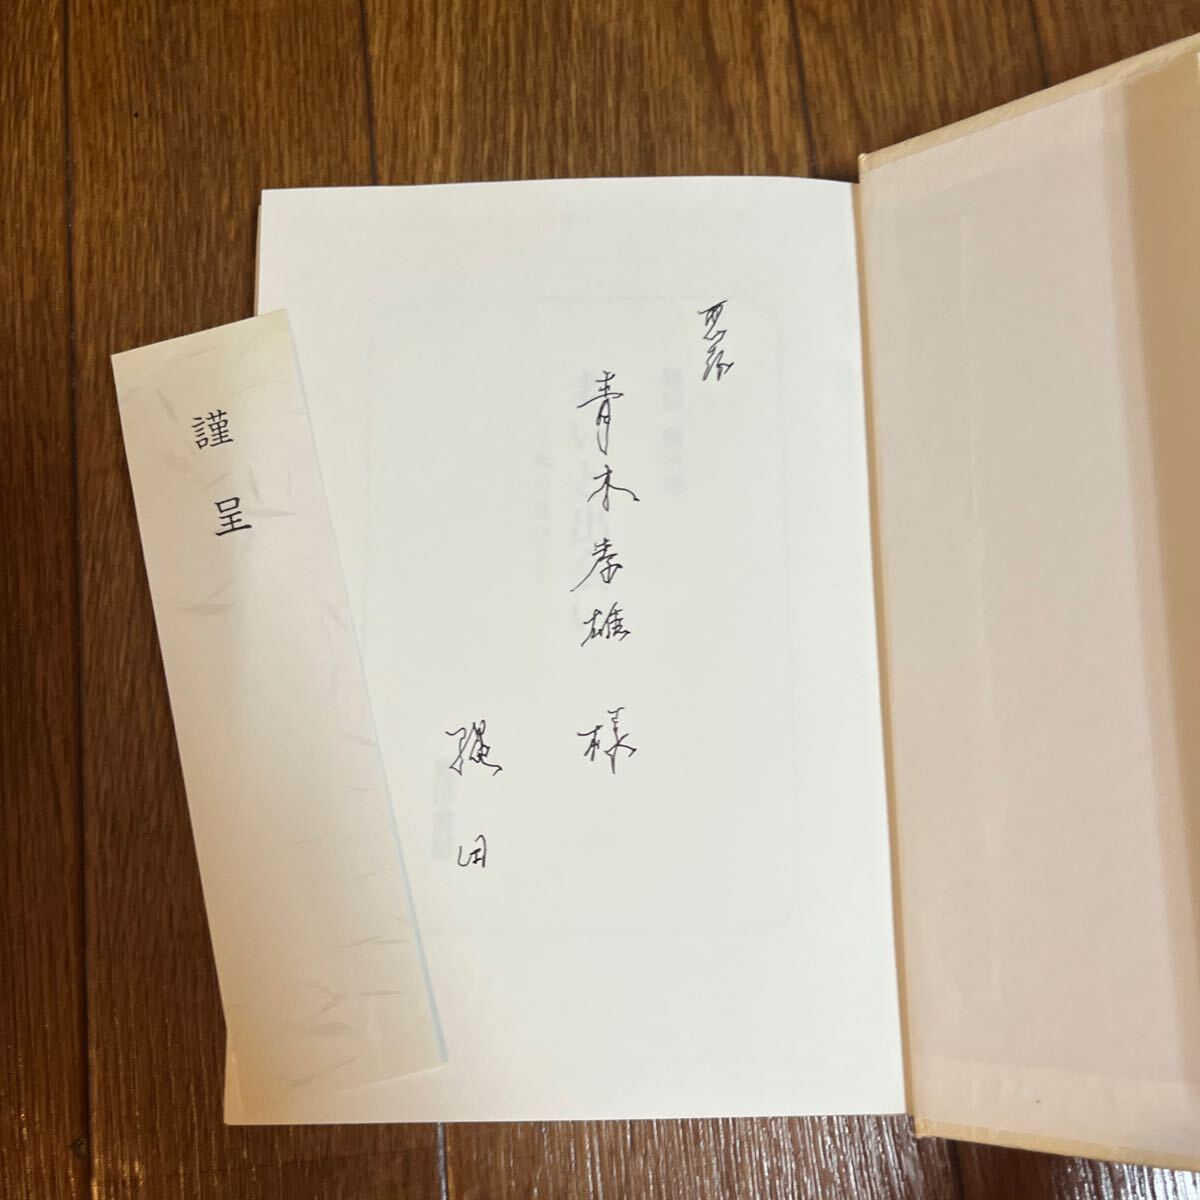 恵存
青木孝雄 様
縄田
謹呈